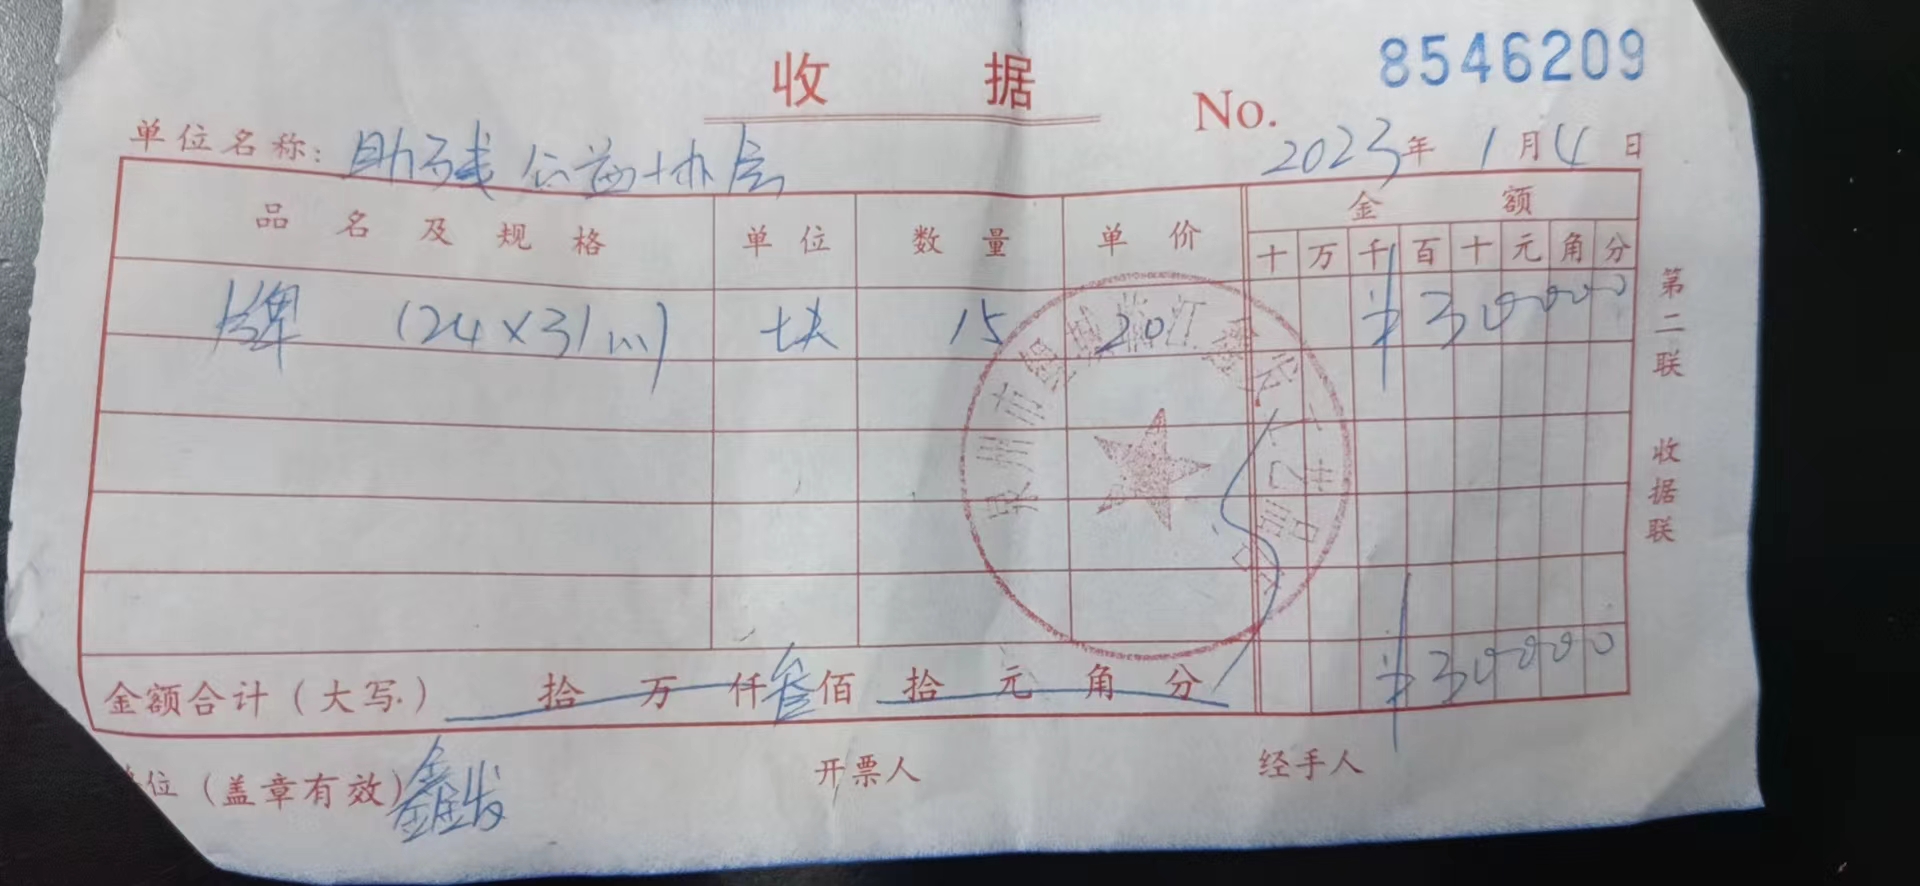 收 据
No. 8546209
单位名称: 助残公益协会
2023年 1月4日
品名及规格 单位 数量 单价 金额
十 万 千 百 十 元 角 分
牌 (24×31cm) 块 15 20 ¥30000
金额合计(大写) 拾 万 仟叁佰 拾 元 角 分 ¥30000
单位(盖章有效) 鑫发 开票人 经手人
第二联 收据联
泉州市
工艺品